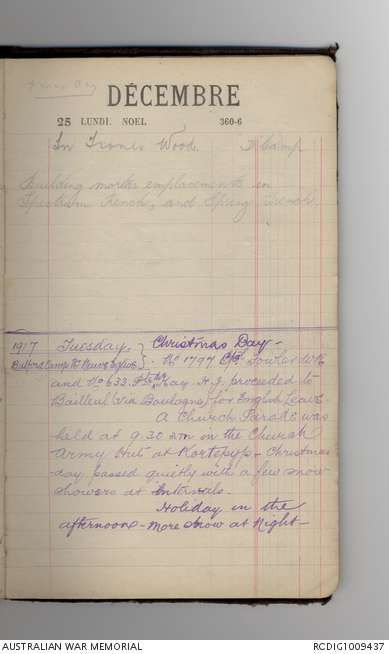 Xmas Day
DÉCEMBRE
25 LUNDI. NOEL 360-6
In Trones Wood. D Camp
Building mortar emplacements in
Spectrum Trench, and Spring Trench.
1917 Tuesday. } Christmas Day -
Bulford Camp Nr Neuve Eglise }. No 1797 Cpl Fowler W.K.
and No 633. Kay H.J. proceeded to
Bailleul (via Boulogne) for English Leave.
A Church Parade was
held at 9.30 am in the Church
Army Hut at Kortepyp. Christmas
day passed quietly with a few snow
showers at Intervals.
Holiday in the
afternoon - more snow at Night -
AUSTRALIAN WAR MEMORIAL RCDIG1009437